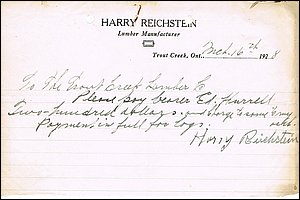 HARRY REICHSTEIN
Lumber Manufacturer
Trout Creek, Ont., Mch. 16th 1928
To The Trout Creek Lumber Co
Please pay bearer Ed. Murrell
Two hundred dollars. and charge to same to my
Payment in full for Logs. acct.
Harry Reichstein